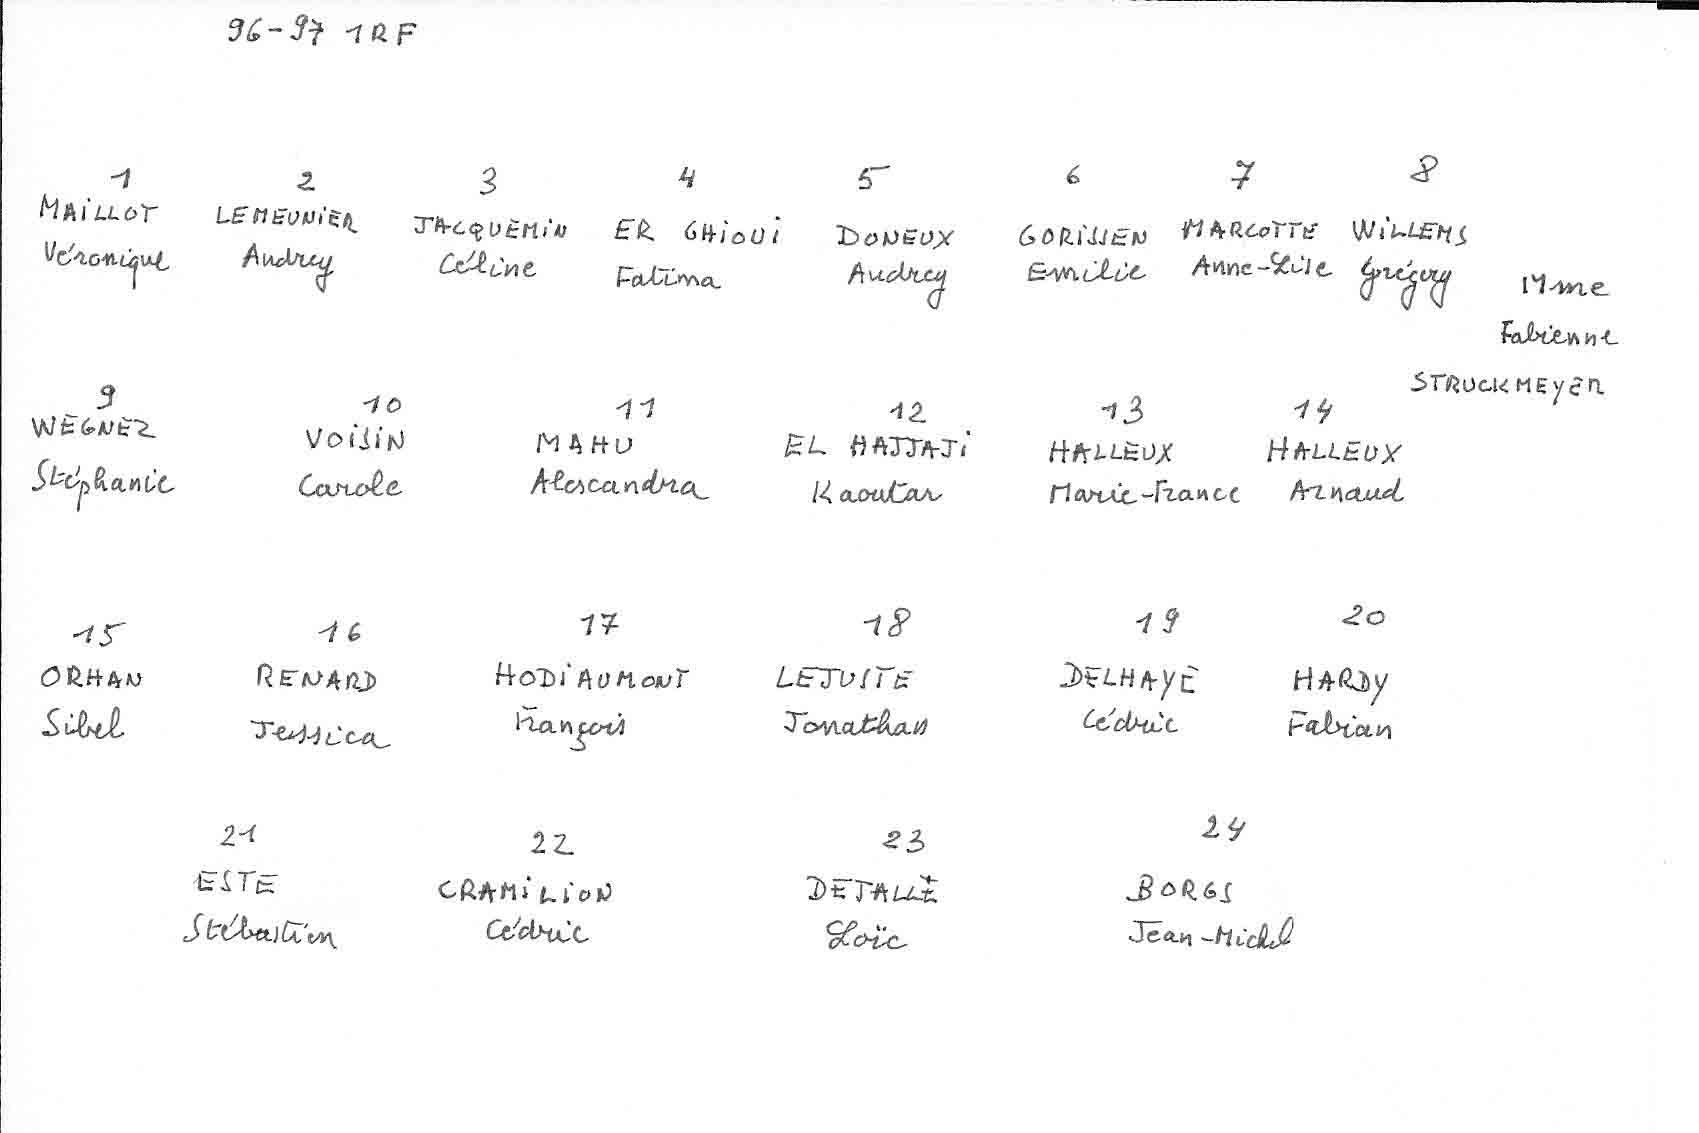 96-97 1RF
1 2 3 4 5 6 7 8
MAILLOT LEMEUNIER JACQUEMIN ER GHIOUI DONEUX GORISSEN MARCOTTE WILLEMS
Véronique Audrey Céline Fatima Audrey Emilie Anne-Lise Grégory
Mme
Fabienne
STRUCKMEYER
9 10 11 12 13 14
WEGNEZ VOISIN MAHU EL HAJJAJI HALLEUX HALLEUX
Stéphanie Carole Alexandra Kaoutar Marie-France Arnaud
15 16 17 18 19 20
ORHAN RENARD HODIAUMONT LEJUSTE DELHAYE HARDY
Sibel Jessica François Jonathan Cédric Fabian
21 22 23 24
ESTE CRAMILION DETALLE BORGS
Stébastien Cédric Loïc Jean-Michel